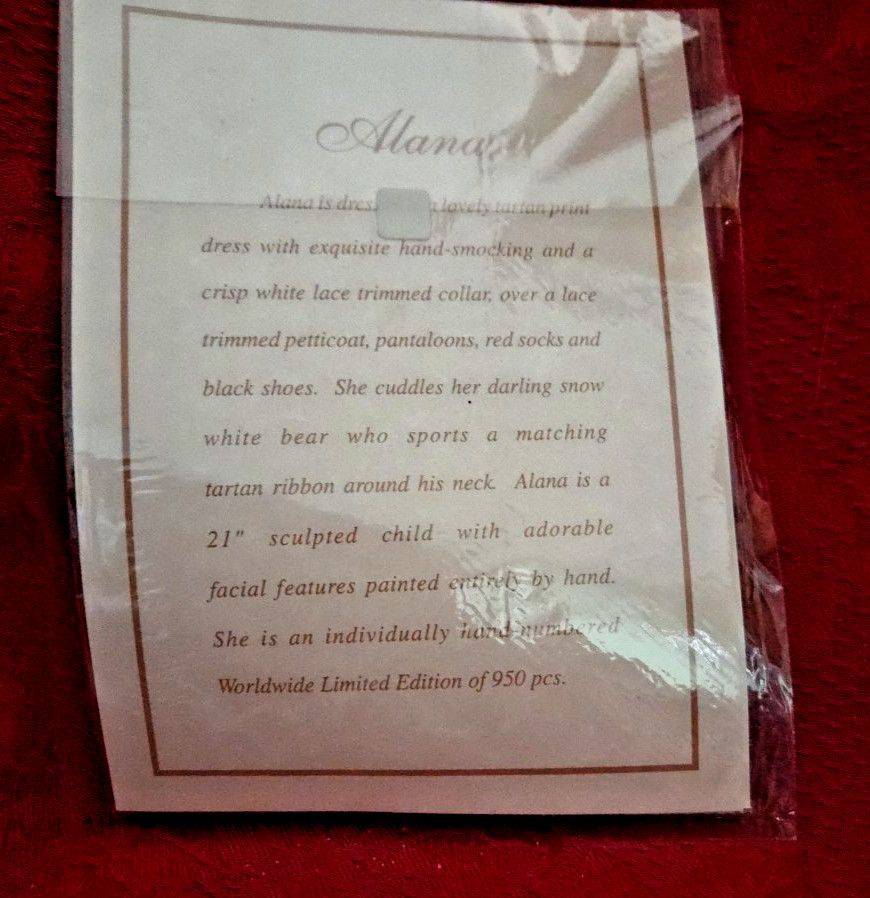 Alana
Alana is dres a lovely tartan print
dress with exquisite hand-smocking and a
crisp white lace trimmed collar, over a lace
trimmed petticoat, pantaloons, red socks and
black shoes. She cuddles her darling snow
white bear who sports a matching
tartan ribbon around his neck. Alana is a
21" sculpted child with adorable
facial features painted entirely by hand.
She is an individually hand-numbered
Worldwide Limited Edition of 950 pcs.